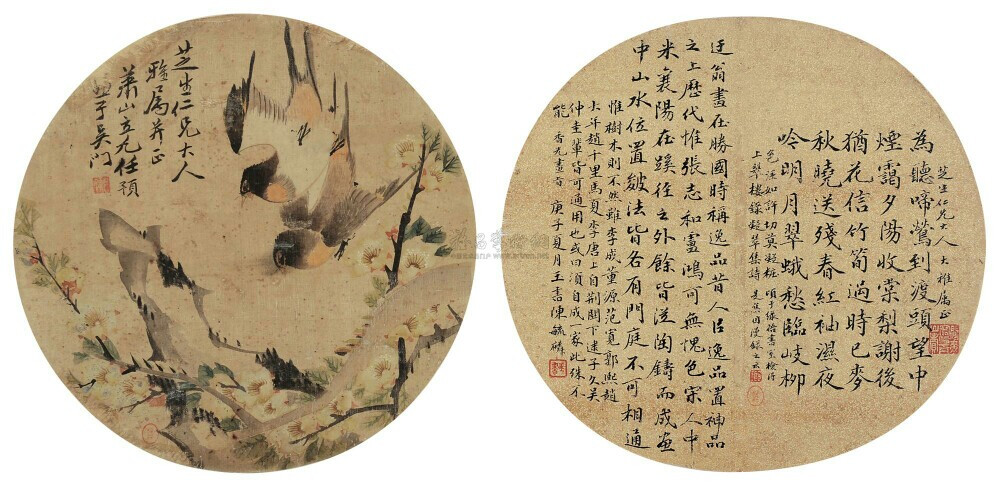 芝生仁兄大人
雅屬并正
蕭山立凡任預
寫于吳門
為聽啼鶯到渡頭望中
煙靄夕陽收棠梨謝後
猶花信竹筍過時已麥
秋曉送殘春紅袖濕夜
吟明月翠蛾愁臨岐柳
色深如許切莫凝粧
上翠樓錄凝翠集詩
芝生仁兄大人大雅屬正
迂翁畫在勝國時稱逸品昔人以逸品置神品
之上歷代惟張志和盧鴻可無愧色宋人中
米襄陽在蹊徑之外餘皆從陶鑄而成畫
中山水位置皴法皆各有門庭不可相通
惟樹木則不然雖李成董源范寬郭熙趙
大年趙千里馬夏李唐上自荊關下逮子久吳
仲圭輩皆可通用也或曰須自成一家此殊不
能 香光畫旨 庚子夏月 陳毓